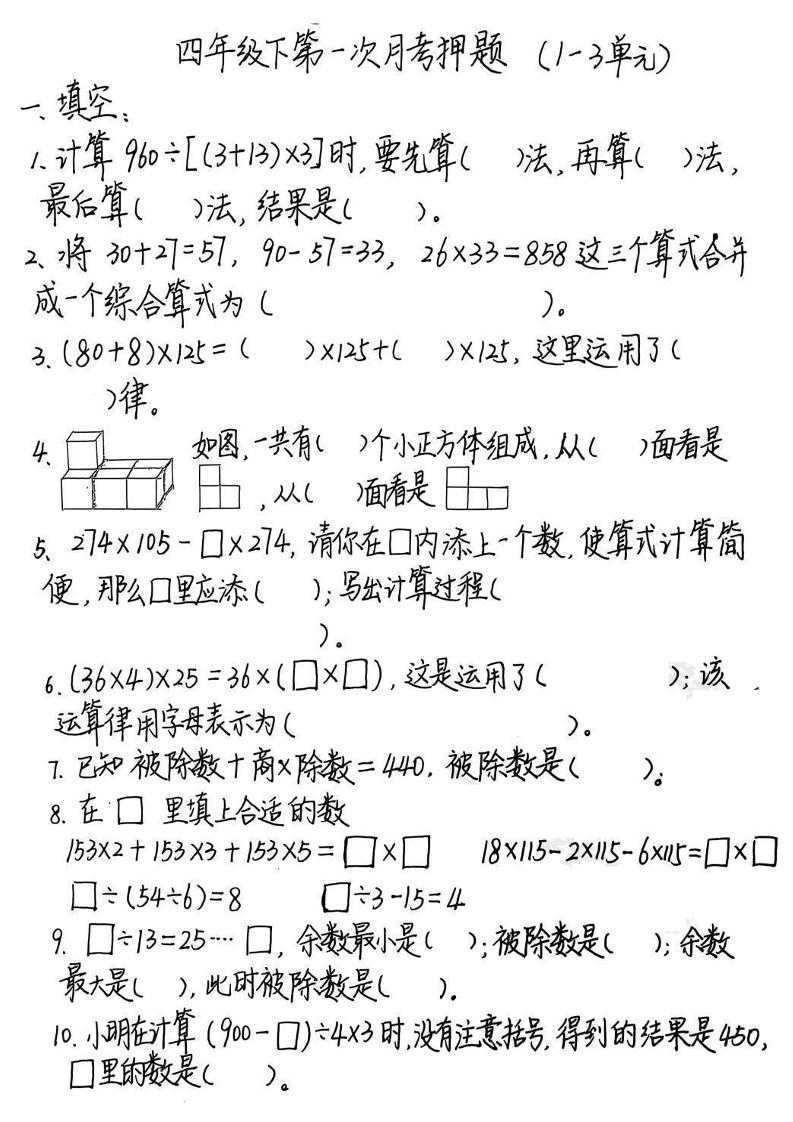 四年级下第一次月考押题 (1-3单元)
一、填空：
1、计算 960÷[(3+13)×3]时,要先算( )法,再算( )法,
最后算( )法,结果是( )。
2、将 30+27=57, 90-57=33, 26×33=858 这三个算式合并
成一个综合算式为 ( )。
3、(80+8)×125=( )×125+( )×125, 这里运用了(
)律。
4、 如图,一共有( )个小正方体组成,从( )面看是
,从( )面看是
5、274×105-□×274,请你在□内添上一个数,使算式计算简
便,那么□里应添( );写出计算过程(
)。
6.(36×4)×25=36×(□×□),这是运用了( );该
运算律用字母表示为( )。
7. 已知 被除数+商×除数=440,被除数是( )。
8. 在 □ 里填上合适的数
153×2+153×3+153×5=□×□ 18×115-2×115-6×115=□×□
□÷(54÷6)=8 □÷3-15=4
9. □÷13=25····□, 余数最小是( );被除数是( );余数
最大是( ),此时被除数是( )。
10. 小明在计算 (900-□)÷4×3 时,没有注意括号,得到的结果是450,
□里的数是( )。